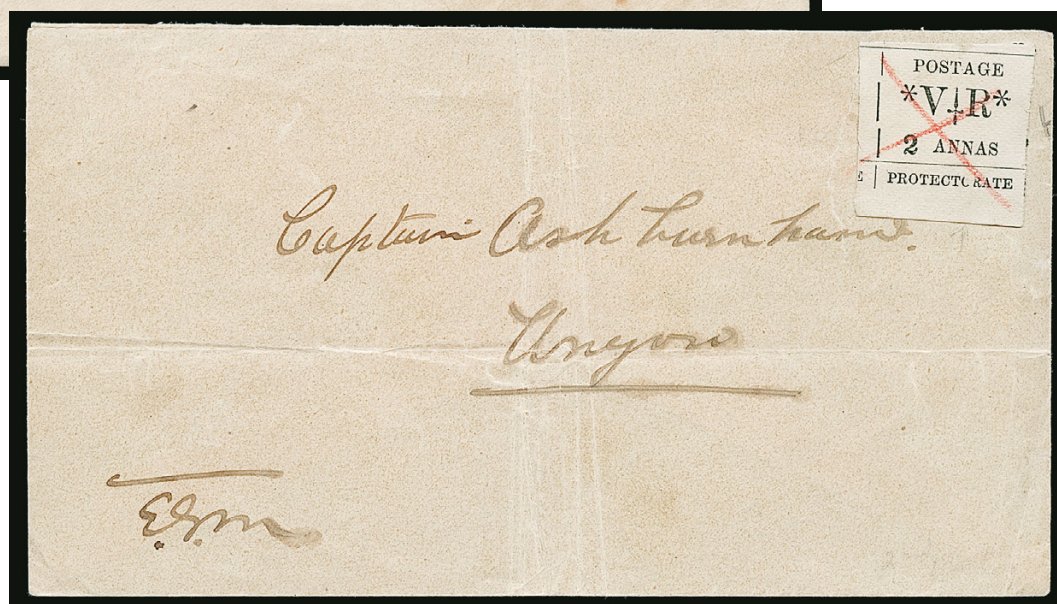 POSTAGE
*V†R*
2 ANNAS
E PROTECTORATE
Captain Ashburnham.
Unyoro